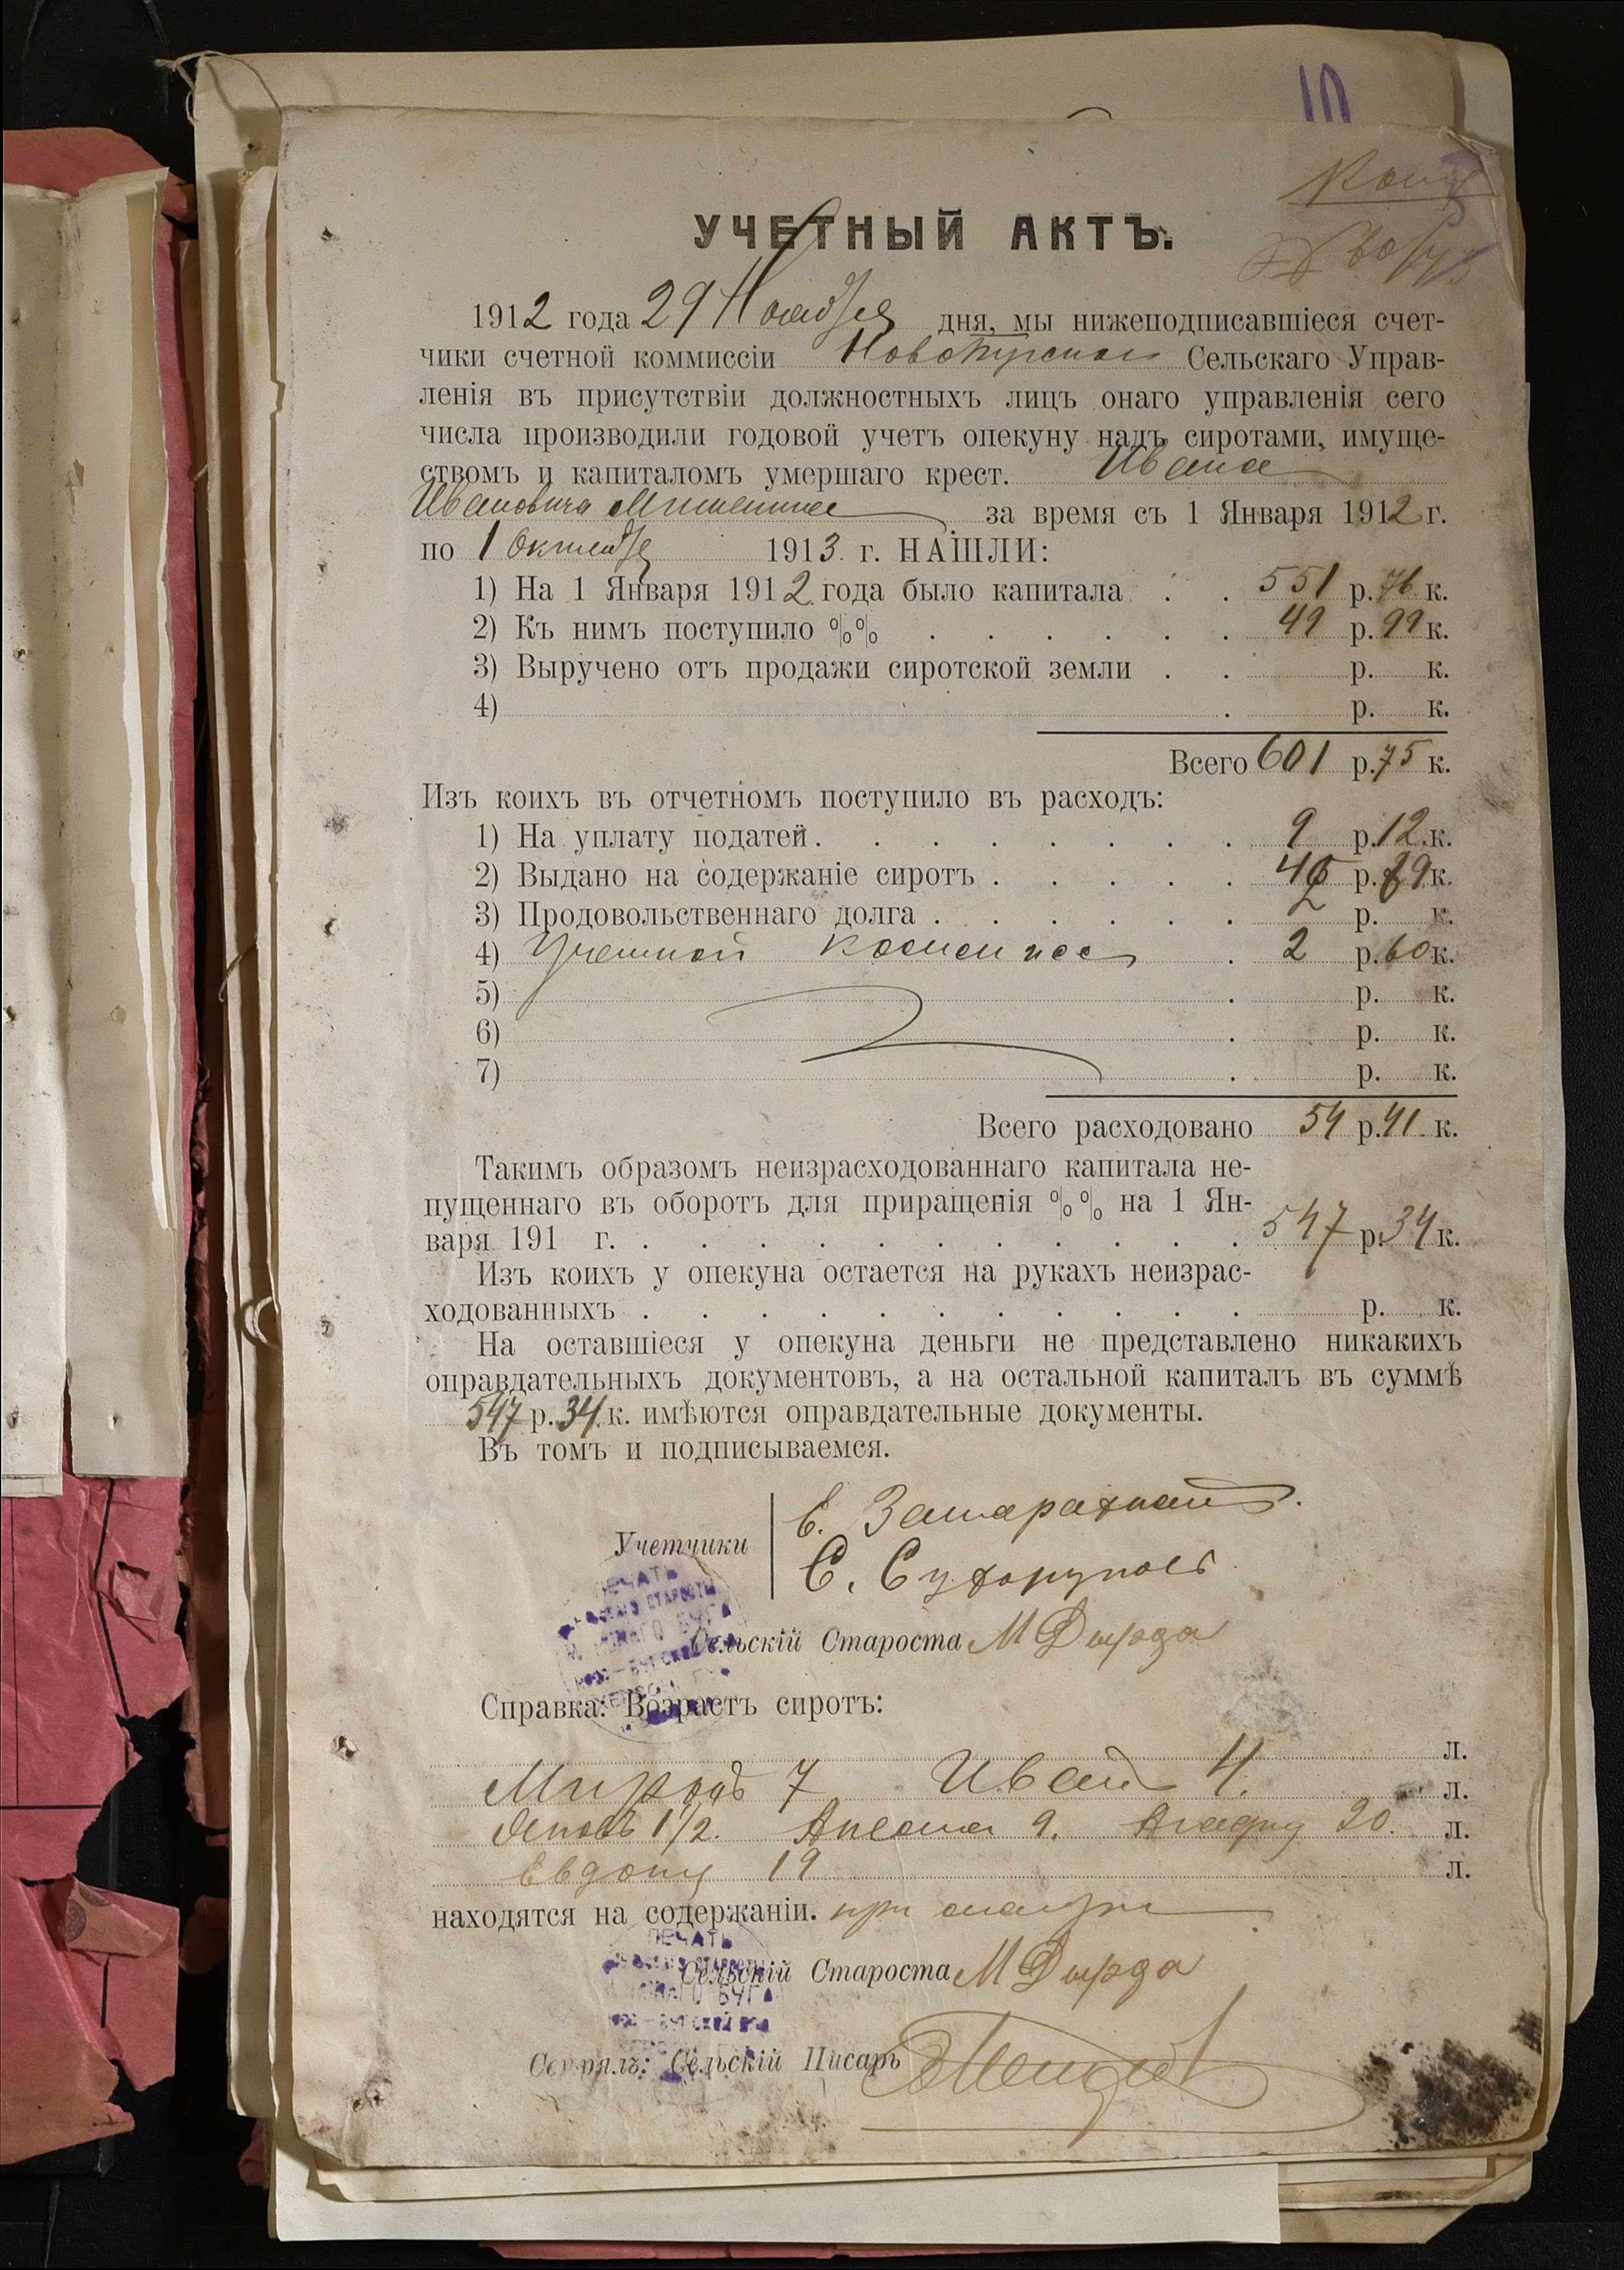 10
УЧЕТНЫЙ АКТЪ.
1912 года 29 Ноября дня, мы нижеподписавшіеся счет-
чики счетной коммиссіи Сельскаго Управ-
ленія въ присутствіи должностныхъ лицъ онаго управленія сего
числа производили годовой учетъ опекуну надъ сиротами, имуще-
ствомъ и капиталомъ умершаго крест. Ивана
Ивановича за время съ 1 Января 1912 г.
по 1 Октября 1913 г. НАШЛИ:
1) На 1 Января 1912 года было капитала . . 551 р. 76 к.
2) Къ нимъ поступило %% . . . . . . 49 р. 99 к.
3) Выручено отъ продажи сиротской земли . . р. к.
4) . р. к.
Всего 601 р. 75 к.
Изъ коихъ въ отчетномъ поступило въ расходъ:
1) На уплату податей . . . . . . . . 9 р. 12 к.
2) Выдано на содержаніе сиротъ . . . . . р. к.
3) Продовольственнаго долга . . . . . . р. к.
4) Учетной . 2 р. 60 к.
5) . р. к.
6) . р. к.
7) . р. к.
Всего расходовано 54 р. 41 к.
Такимъ образомъ неизрасходованнаго капитала не-
пущеннаго въ оборотъ для приращенія %% на 1 Ян-
варя 191 г. . . . . . . . . . . . 547 р. 34 к.
Изъ коихъ у опекуна остается на рукахъ неизрас-
ходованныхъ . . . . . . . . . . . р. к.
На оставшіеся у опекуна деньги не представлено никакихъ
оправдательныхъ документовъ, а на остальной капиталъ въ суммѣ
547 р. 34 к. имѣются оправдательные документы.
Въ томъ и подписываемся.
Учетчики
С. Сухоруковъ
Сельскій Староста М Дырда
Справка: Возрастъ сиротъ:
л.
Миронъ 7 Иванъ 4. л.
Яковъ 1 1/2. 9. 20. л.
19 л.
находятся на содержаніи. при матери
ПЕЧАТЬ
Сельскій Староста М Дырда
Сельскій Писарь